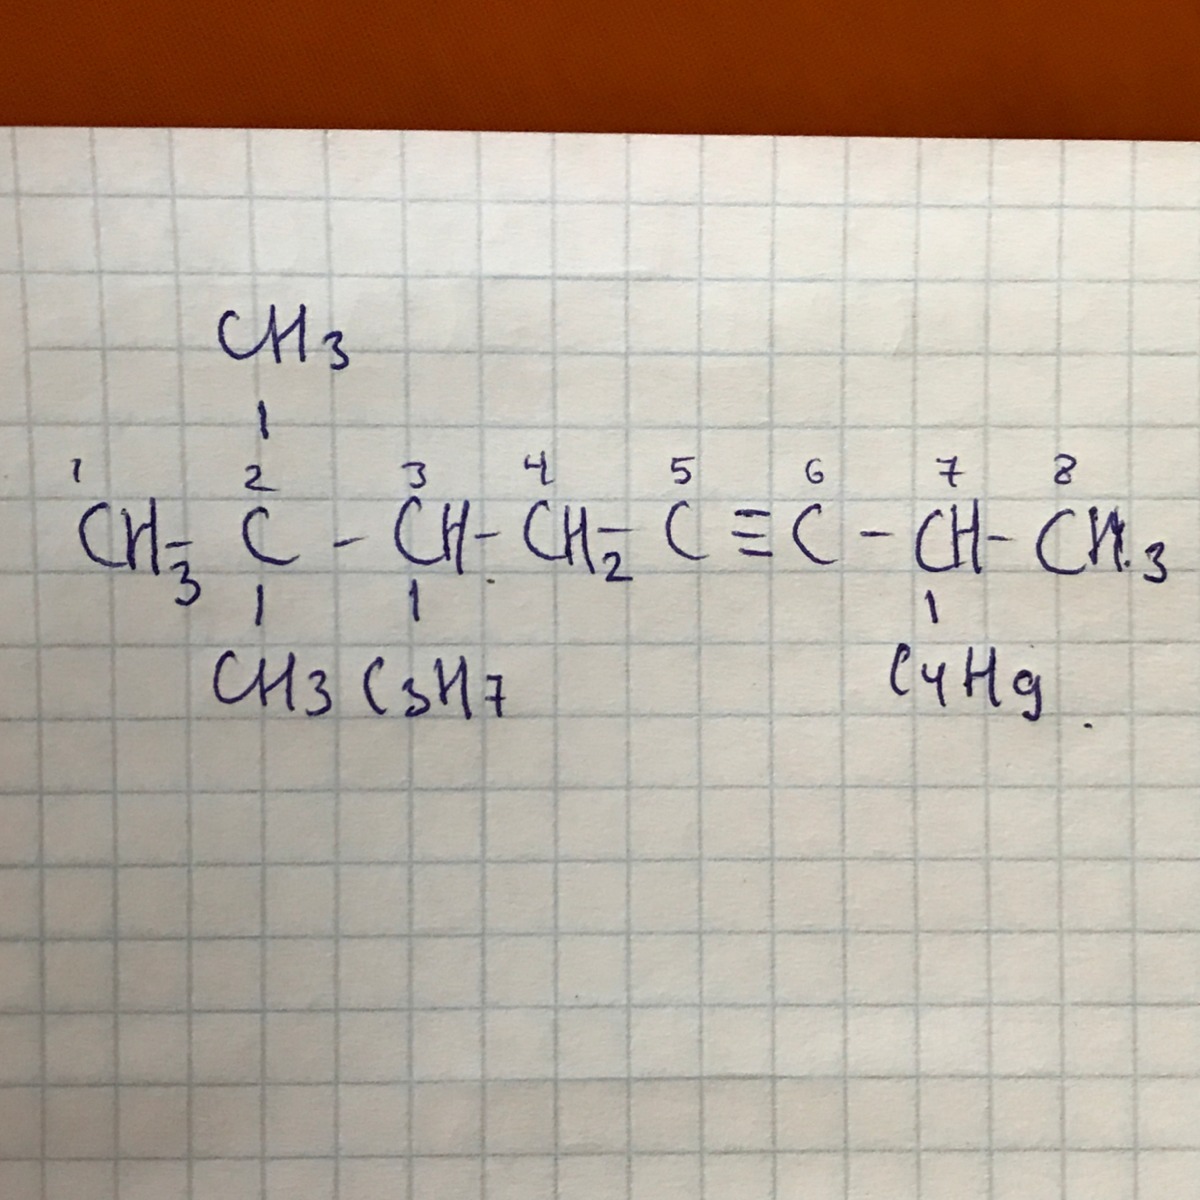 CH3
|
1 2 3 4 5 6 7 8
CH3 - C - CH - CH2 - C ≡ C - CH - CH3
| | |
CH3 C3H7 C4H9